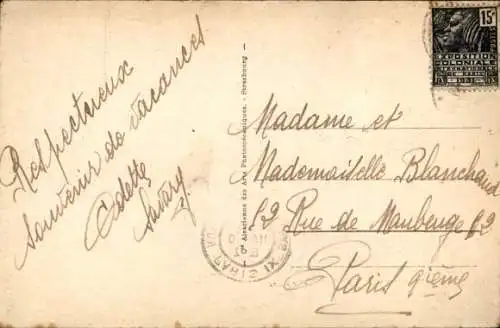 Respectueux
souvenir de vacances
Odette
Savary
Cie Alsacienne des Arts Photomécaniques. - Strasbourg
15c
EXPOSITION
COLONIALE
INTERNATIONALE
PARIS
1931
Madame et
Mademoiselle Blanchard
62 Rue de Maubeuge 62
Paris 9ème